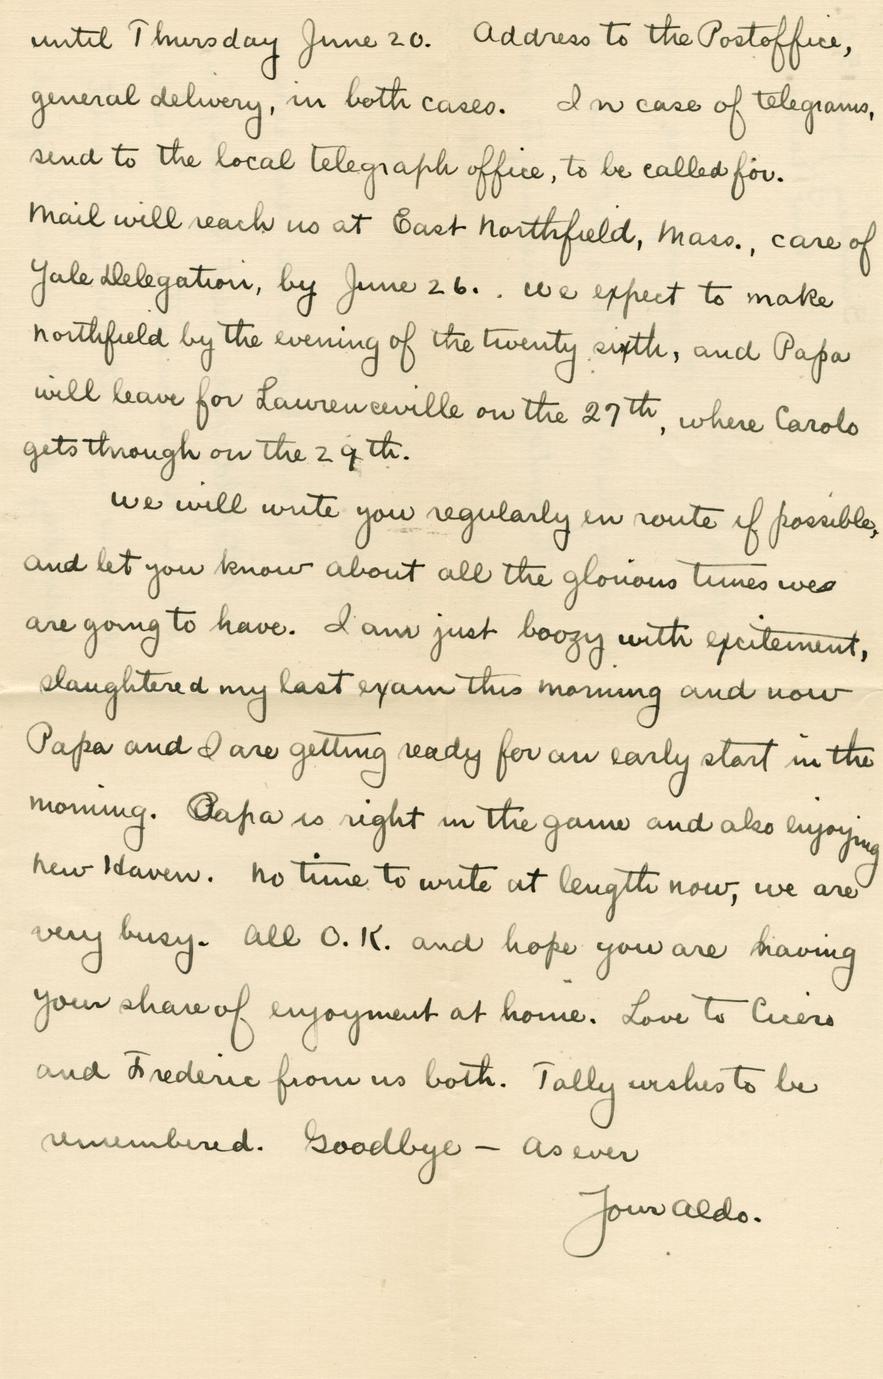 until Thursday June 20. Address to the Postoffice,
general delivery, in both cases. In case of telegrams,
send to the local telegraph office, to be called for.
Mail will reach us at East Northfield, Mass., care of
Yale Delegation, by June 26. . We expect to make
Northfield by the evening of the twenty sixth, and Papa
will leave for Lawrenceville on the 27th, where Carolo
gets through on the 29th.
We will write you regularly en route if possible,
and let you know about all the glorious times we
are going to have. I am just boozy with excitement,
slaughtered my last exam this morning and now
Papa and I are getting ready for an early start in the
morning. Papa is right in the game and also enjoying
New Haven. No time to write at length now, we are
very busy. All O.K. and hope you are having
your share of enjoyment at home. Love to Cicero
and Frederic from us both. Tally wishes to be
remembered. Goodbye — As ever
Your Aldo.